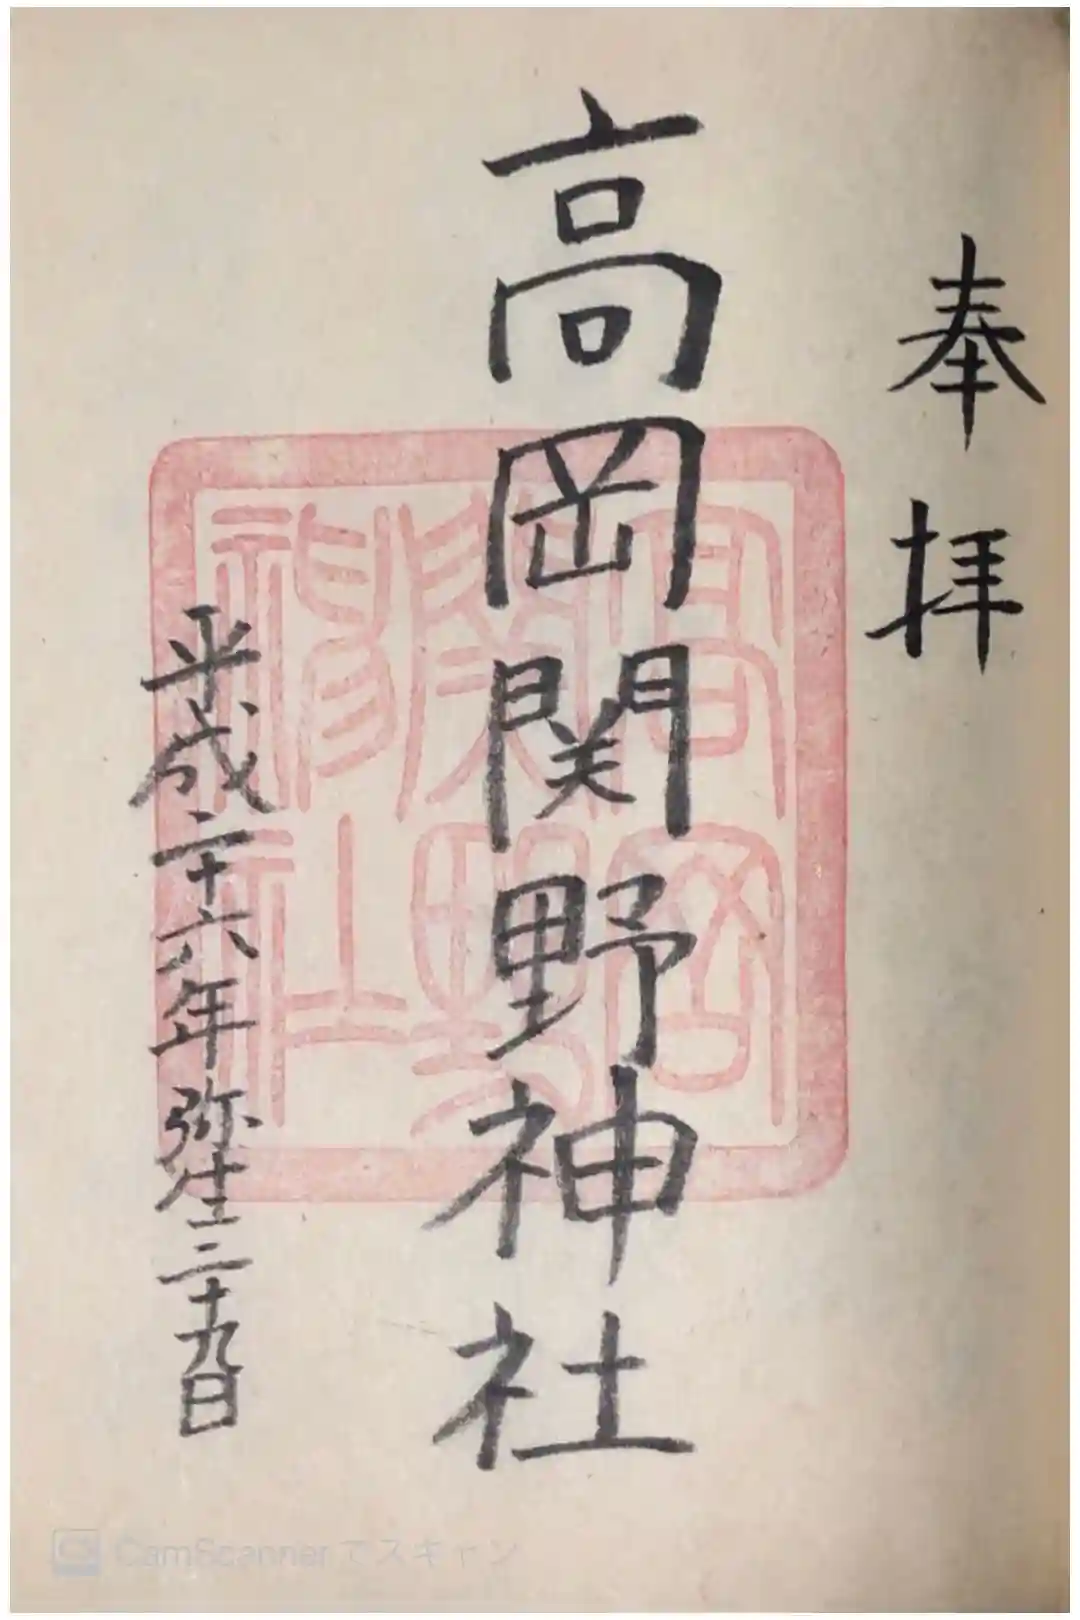 奉拝
高岡関野神社
平成二十六年弥生二十九日
高岡
関野
神社
CamScannerでスキャン